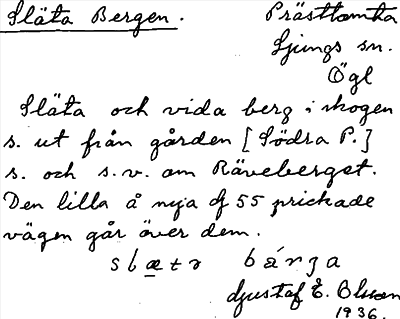 Släta Bergen. Prästtomta
Ljungs sn.
Ögl
Släta och vida berg i skogen
s. ut från gården [Södra P.]
s. och s.v. om Räveberget.
Den lilla å nya df 55 prickade
vägen går över dem.
slætə bárʒa
Gustaf E. Olsson
1936.